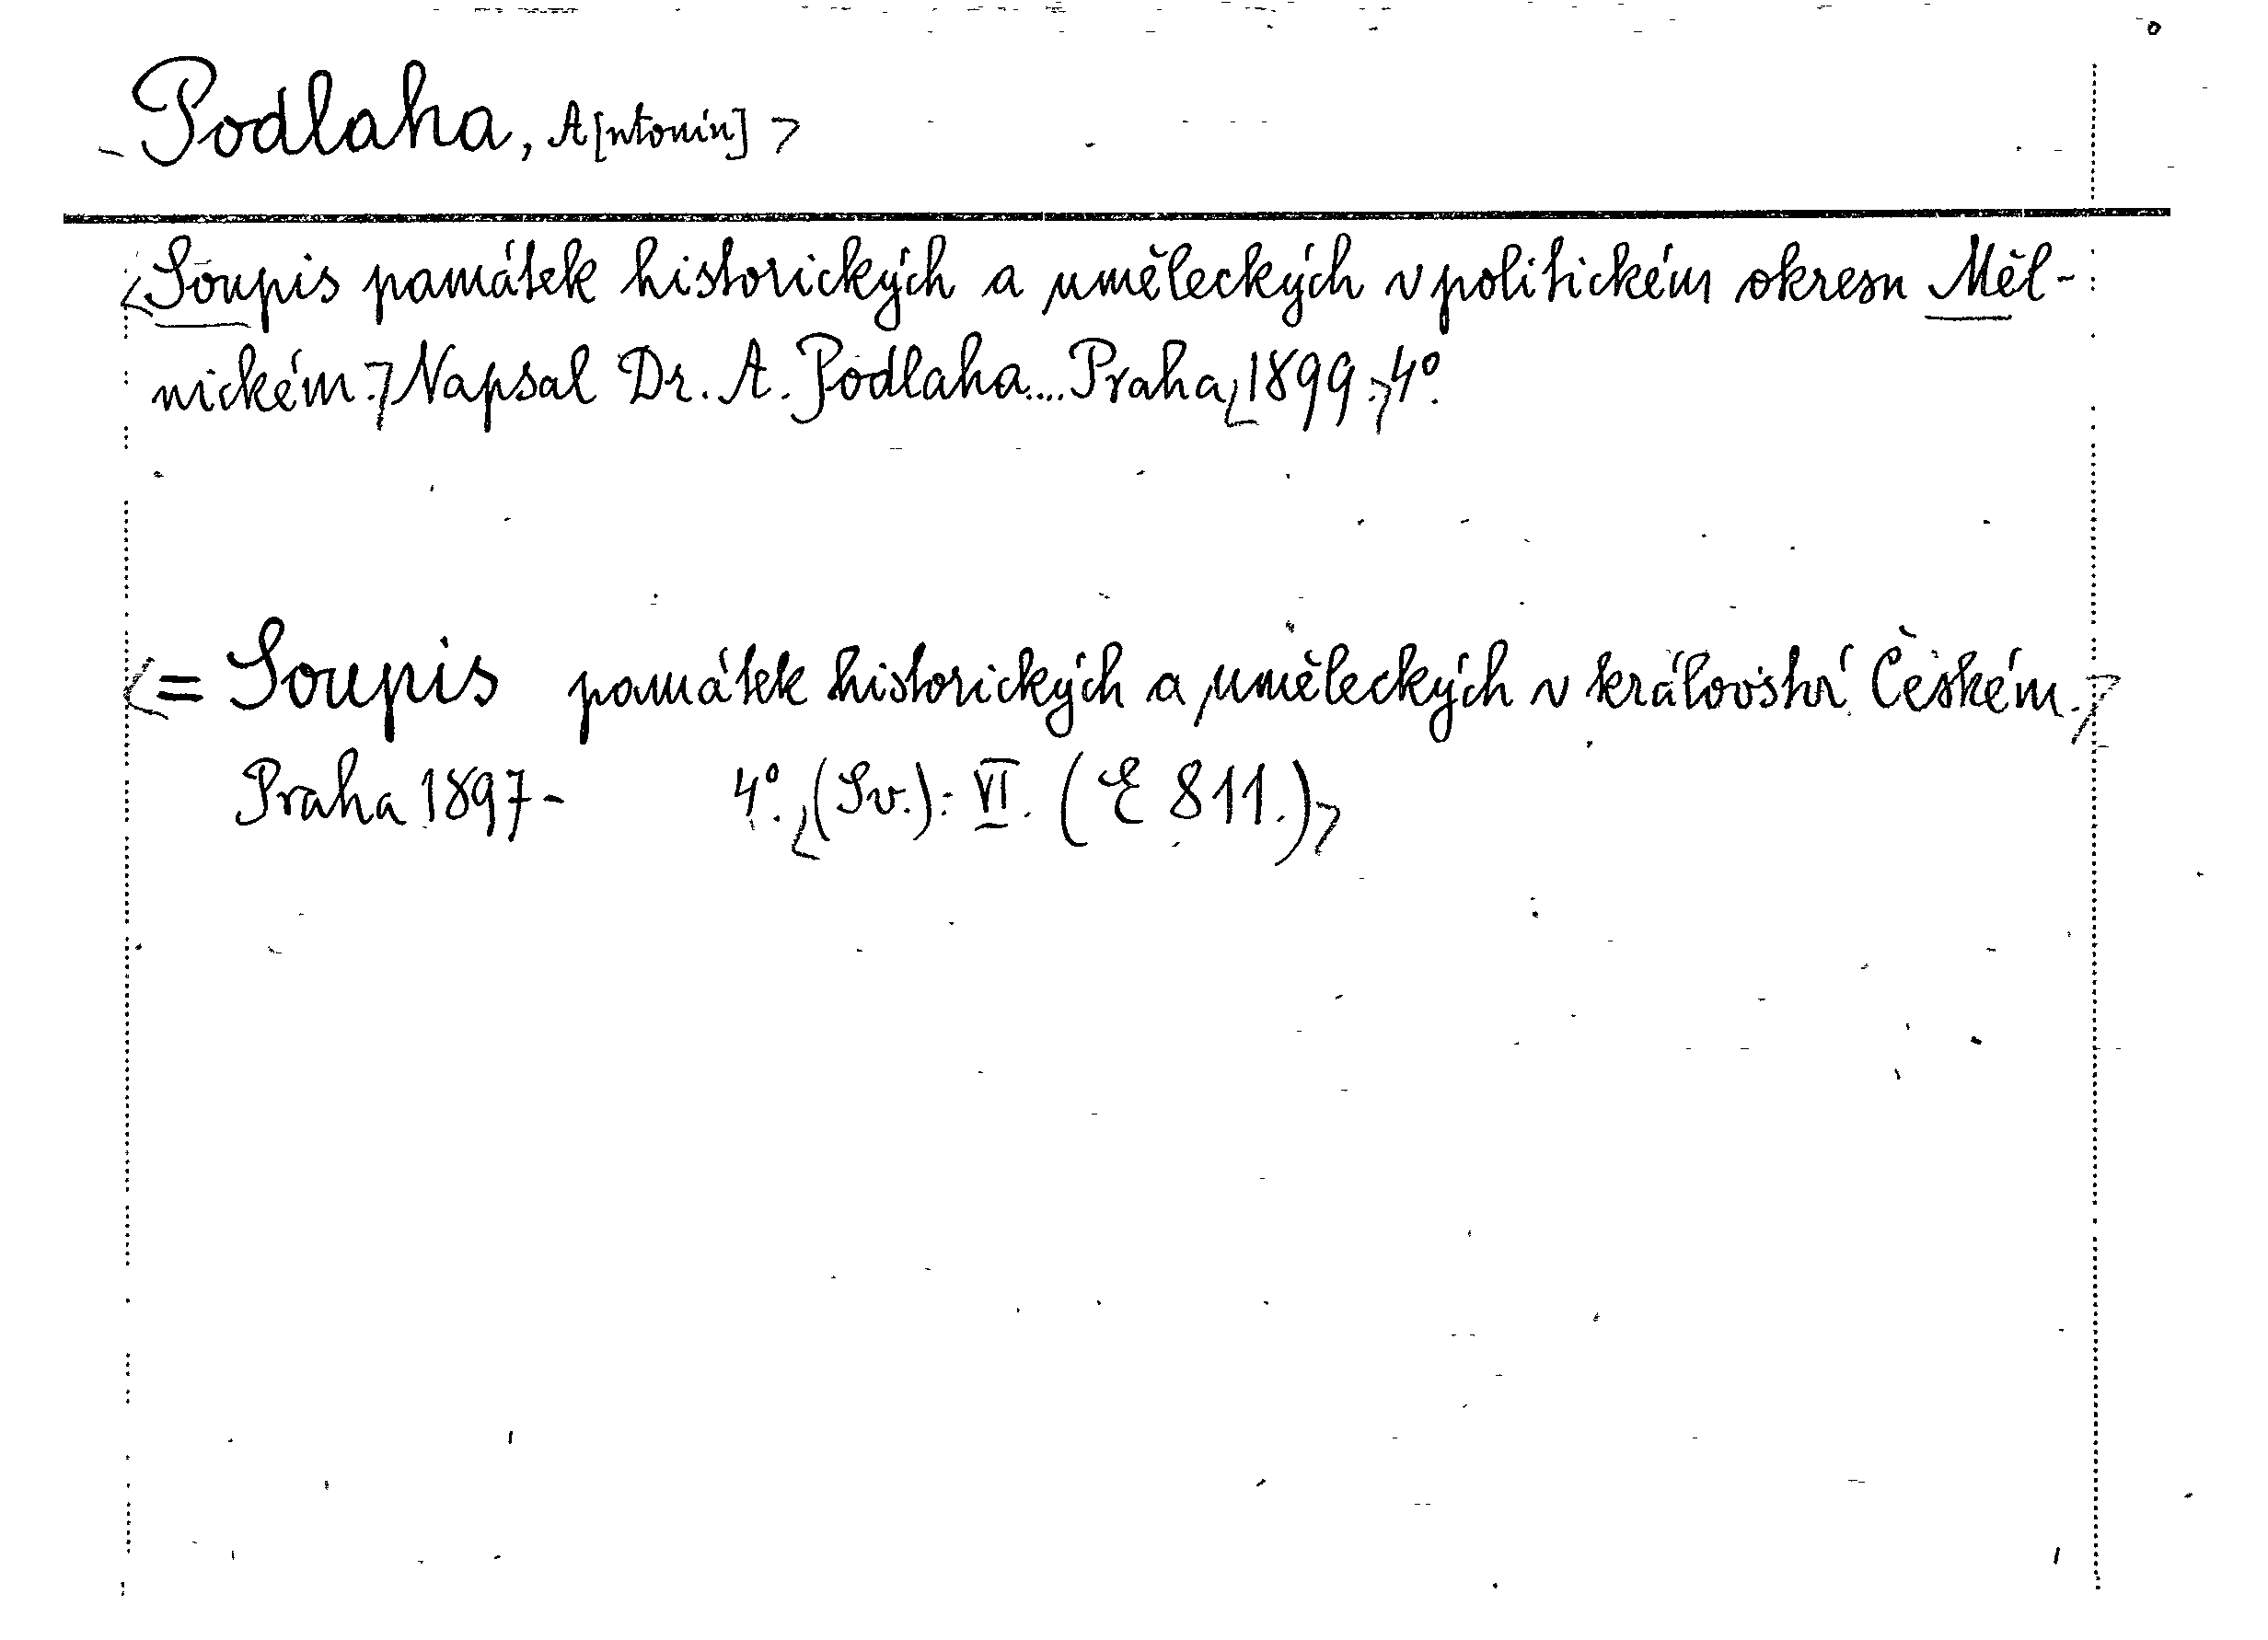 Podlaha, A[ntonín]
Soupis památek historických a uměleckých v politickém okresu Měl-
nickém. Napsal Dr. A. Podlaha.... Praha 1899. 4°.
= Soupis památek historických a uměleckých v království Českém.
Praha 1897- 4°. (Sv.): VI. (E 811.)